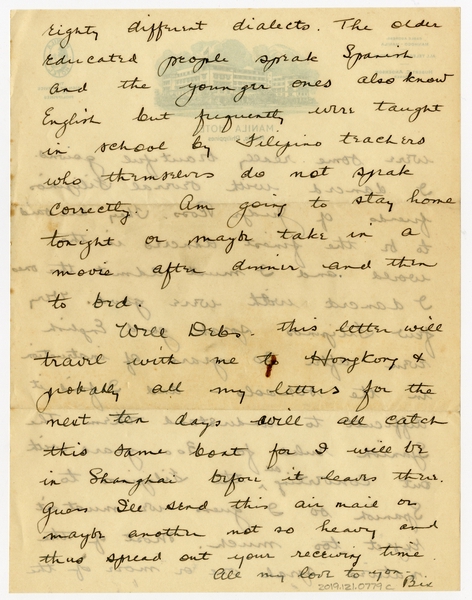 eighty different dialects. The older
educated people speak Spanish
and the younger ones also know
English but frequently were taught
in school by Filipino teachers
who themselves do not speak
correctly. Am going to stay home
tonight or maybe take in a
movie after dinner and then
to bed.
Well Debs. this letter will
travel with me to Hongkong &
probably all my letters for the
next ten days will all catch
this same boat for I will be
in Shanghai before it leaves there.
Guess I'll send this air mail or
maybe another not so heavy and
thus spread out your receiving time.
All my love to you
Bix
2019.121.0779c